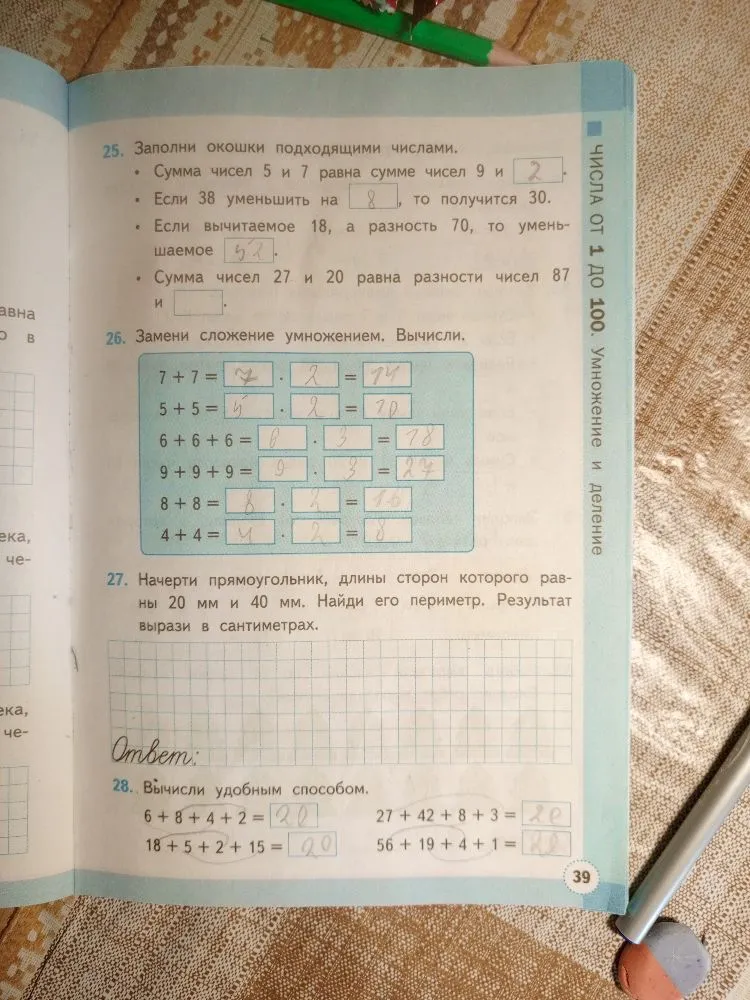 25. Заполни окошки подходящими числами.
• Сумма чисел 5 и 7 равна сумме чисел 9 и 2.
• Если 38 уменьшить на 8, то получится 30.
• Если вычитаемое 18, а разность 70, то умень-
шаемое 52.
• Сумма чисел 27 и 20 равна разности чисел 87
и .
26. Замени сложение умножением. Вычисли.
7 + 7 = 7 · 2 = 14
5 + 5 = 5 · 2 = 10
6 + 6 + 6 = 6 · 3 = 18
9 + 9 + 9 = 9 · 3 = 27
8 + 8 = 8 · 2 = 16
4 + 4 = 4 · 2 = 8
27. Начерти прямоугольник, длины сторон которого рав-
ны 20 мм и 40 мм. Найди его периметр. Результат
вырази в сантиметрах.
Ответ:
28. Вычисли удобным способом.
6 + 8 + 4 + 2 = 20
27 + 42 + 8 + 3 = 20
18 + 5 + 2 + 15 = 20
56 + 19 + 4 + 1 =
39
ЧИСЛА ОТ 1 ДО 100. Умножение и деление
авна
о в
ека,
че-
ека,
че-